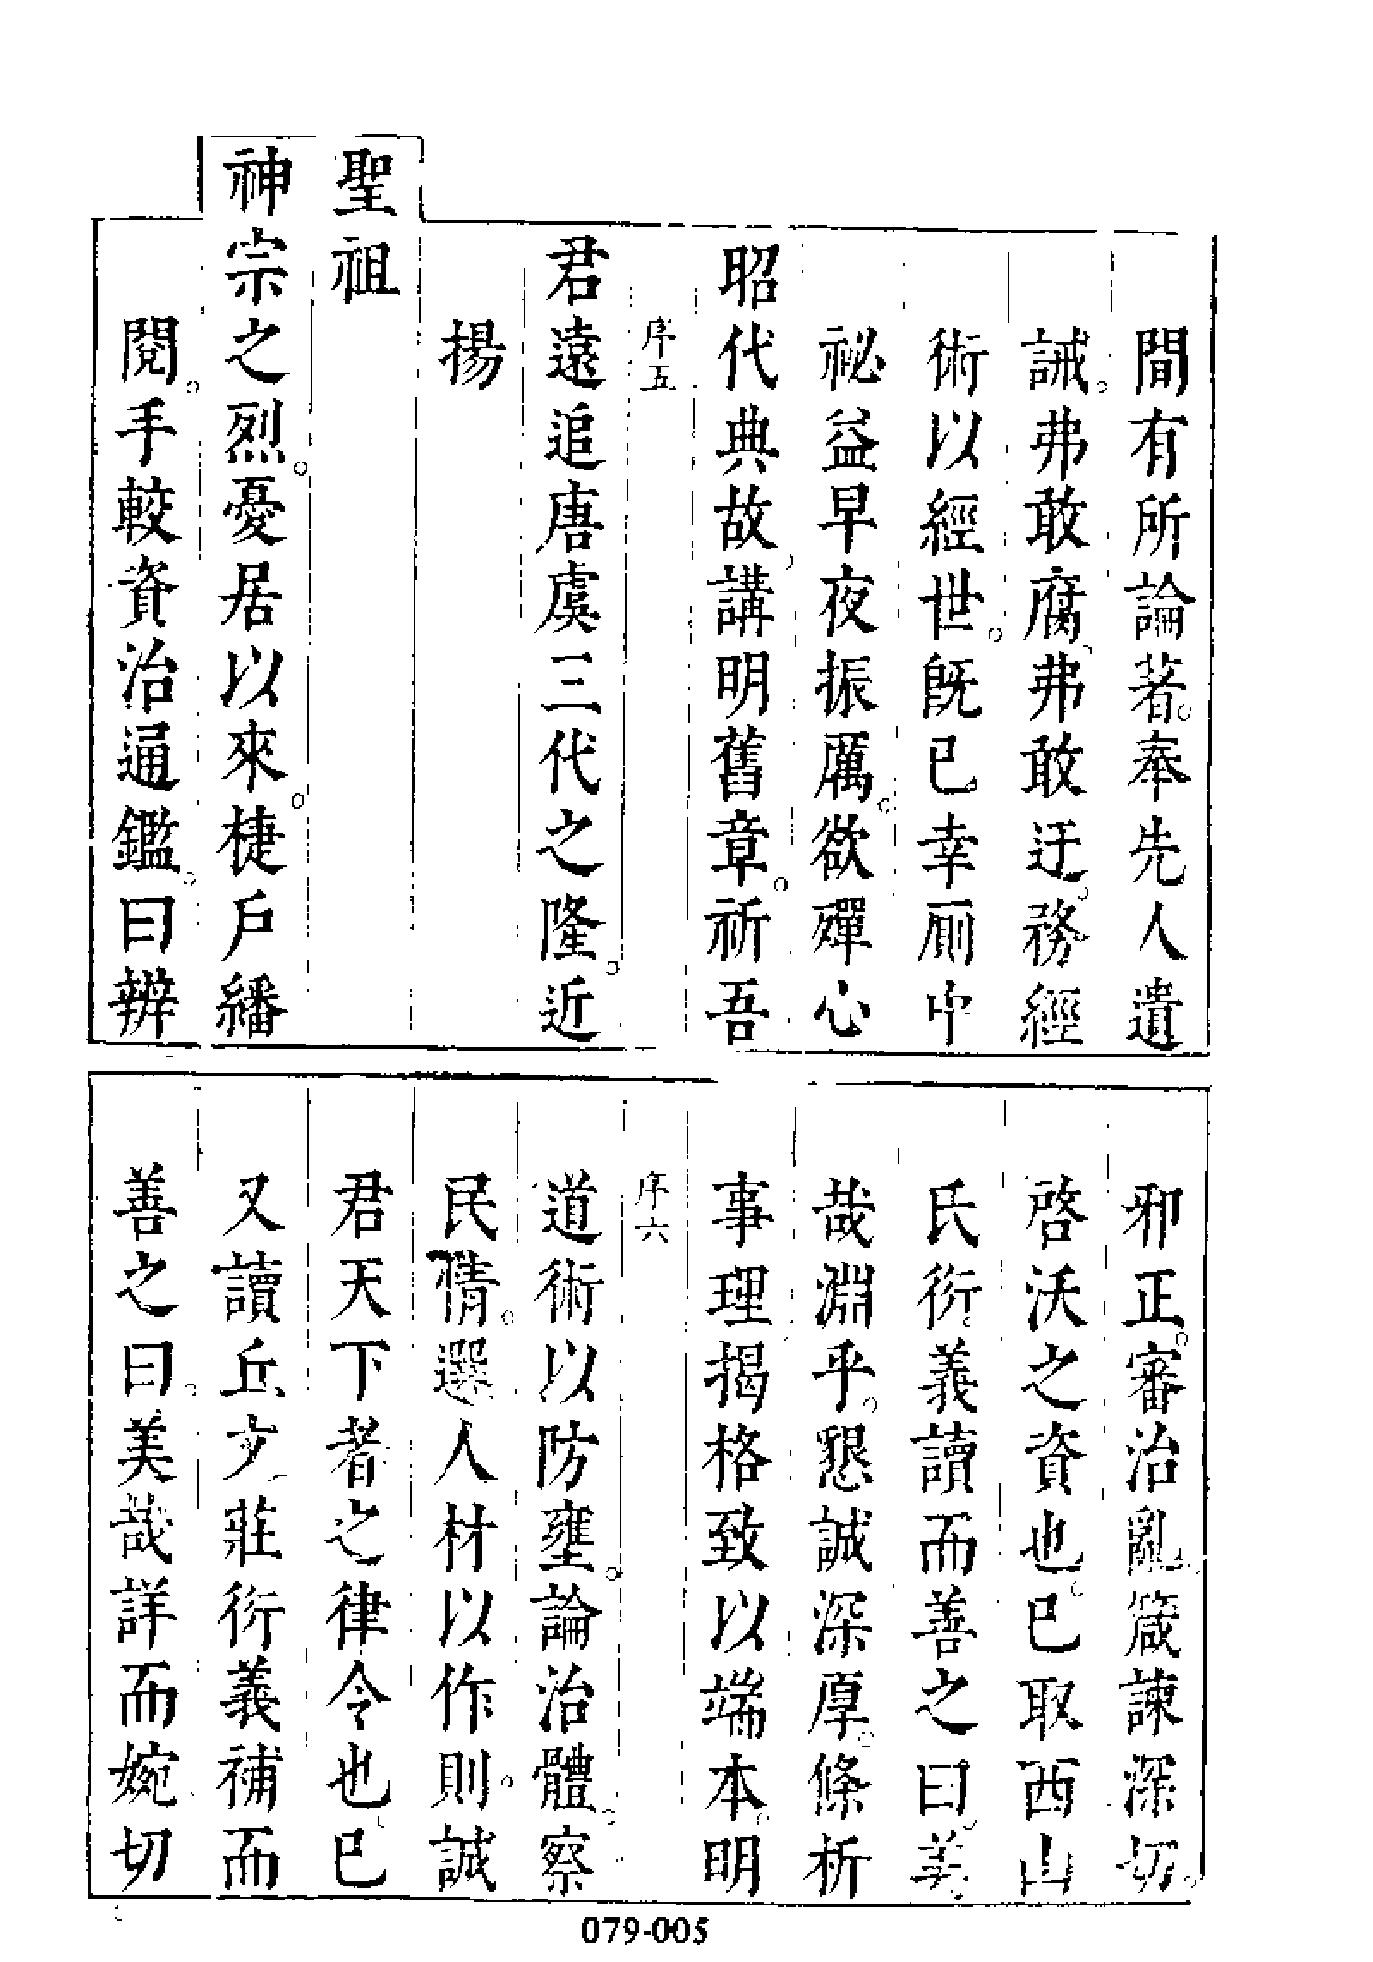 間有所論著。奉先人遺
誡。弗敢腐、弗敢迂、務經
術以經世。旣已幸厠中
祕益早夜振厲。欲殫心
昭代典故、講明舊章。祈吾
序五
君遠追唐虞三代之隆。近
揚
聖祖
神宗之烈。憂居以來。揵戶繙
閱。手較資治通鑑。曰辨
邪正。審治亂。箴諫深切。
啓沃之資也。已取西山
氏衍義讀而善之曰、美
哉淵乎。懇誠深厚。條析
事理揭格致以端本。明
序六
道術以防壅。論治體。察
民情。選人材以作則。誠
君天下者之律令也。已
又讀丘文莊衍義補而
善之曰。美哉詳而婉切
079-005